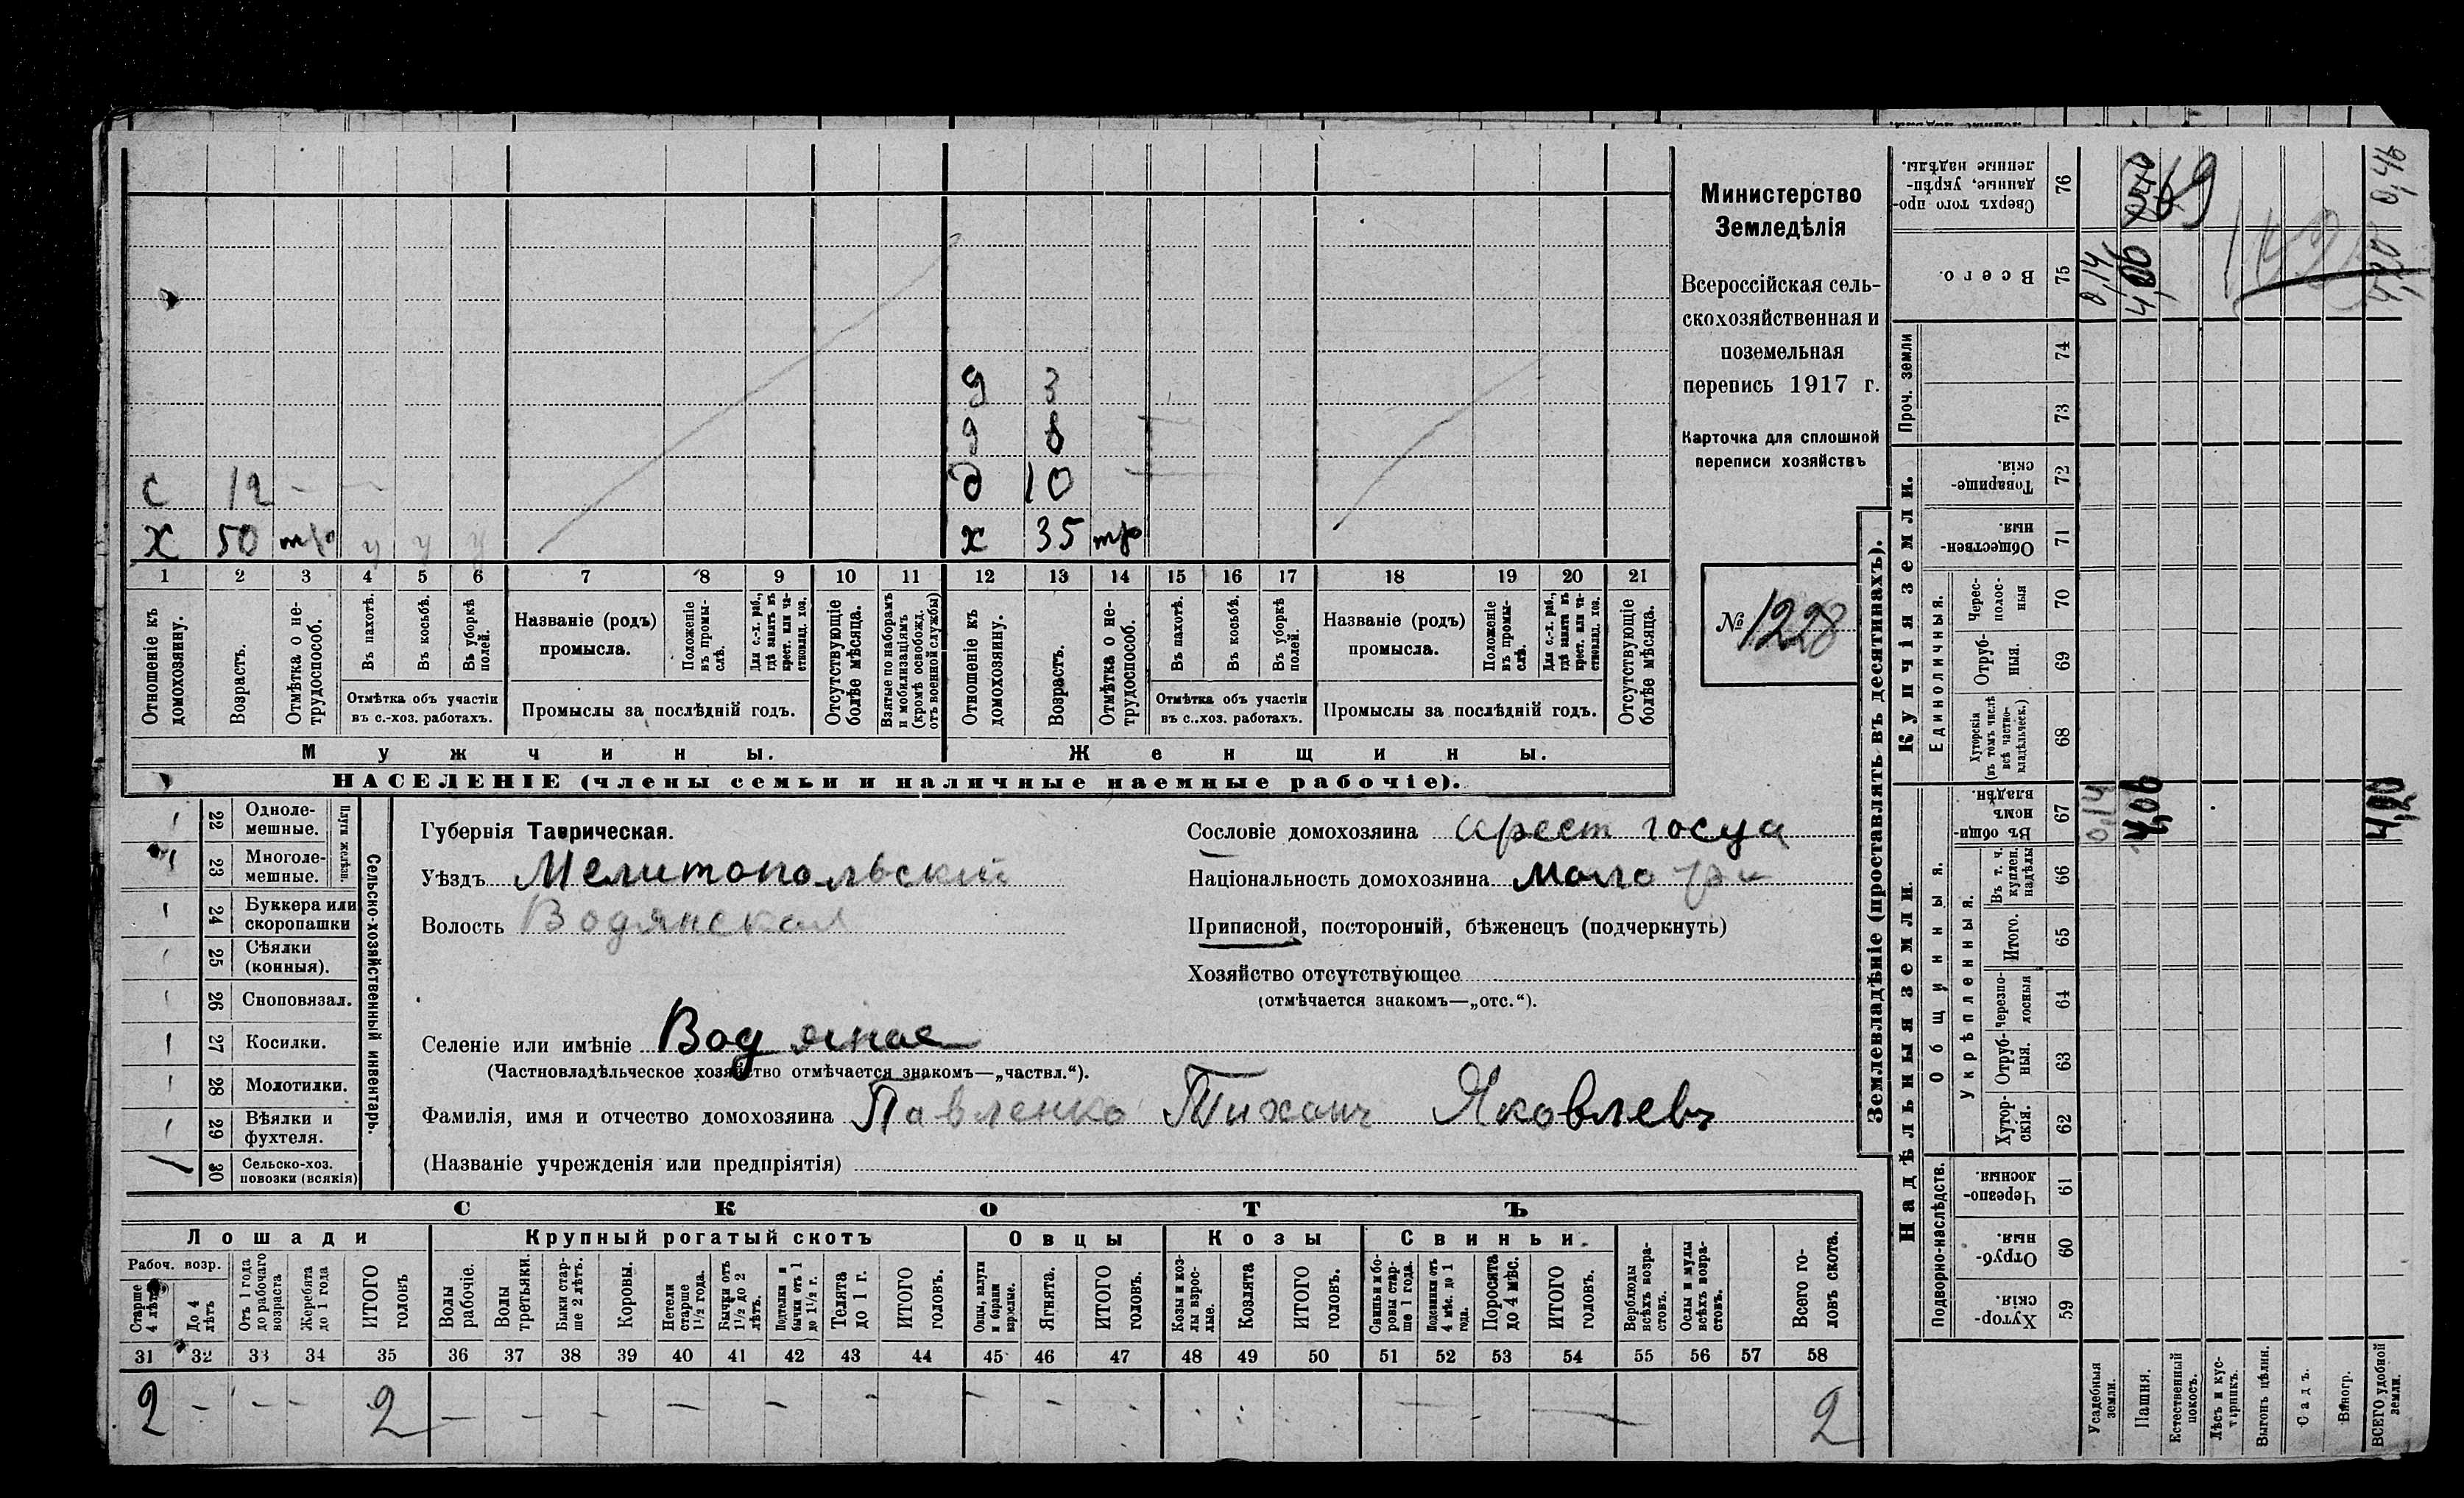 Министерство
Земледѣлія
Всероссійская сель-
скохозяйственная и
поземельная
перепись 1917 г.
Карточка для сплошной
переписи хозяйствъ
№ 1228
д 3
д 8
с 12 - - д 10
х 50 х 35
1 2 3 4 5 6 7 8 9 10 11 12 13 14 15 16 17 18 19 20 21
Отношеніе къ домохозяину.
Возрастъ.
Отмѣтка о не-трудоспособ.
Въ пахотѣ.
Въ косьбѣ.
Въ уборкѣ полей.
Отмѣтка объ участіи
въ с.-хоз. работахъ.
Названіе (родъ)
промысла.
Положеніе въ промы-слѣ.
Для с.-х. раб., гдѣ занятъ въ крест. или ча-стновлад. хоз.
Промыслы за послѣдній годъ.
Отсутствующіе болѣе мѣсяца.
Взятые по наборамъ и мобилизаціямъ (кромѣ освобожд. отъ военной службы)
Отношеніе къ домохозяину.
Возрастъ.
Отмѣтка о не-трудоспособ.
Въ пахотѣ.
Въ косьбѣ.
Въ уборкѣ полей.
Отмѣтка объ участіи
въ с.-хоз. работахъ.
Названіе (родъ)
промысла.
Положеніе въ промы-слѣ.
Для с.-х. раб., гдѣ занята въ крест. или ча-стновлад. хоз.
Промыслы за послѣдній годъ.
Отсутствующіе болѣе мѣсяца.
Мужчины.
Женщины.
НАСЕЛЕНІЕ (члены семьи и наличные наемные рабочіе).
Сельско-хозяйственный инвентарь.
Плуги желѣзн.
22 Одноле-мешные.
23 Многоле-мешные.
24 Буккера или скоропашки
25 Сѣялки (конныя).
26 Сноповязал.
27 Косилки.
28 Молотилки.
29 Вѣялки и фухтеля.
30 Сельско-хоз. повозки (всякія)
Губернія Таврическая.
Уѣздъ Мелитопольскій
Волость Водянская
Селеніе или имѣніе Водяное
(Частновладѣльческое хозяйство отмѣчается знакомъ—„частвл.“).
Фамилія, имя и отчество домохозяина Павленко Тихон Яковлевъ
(Названіе учрежденія или предпріятія)
Сословіе домохозяина крест госуд
Національность домохозяина мало
Приписной, посторонній, бѣженецъ (подчеркнуть)
Хозяйство отсутствующее
(отмѣчается знакомъ—„отс.“).
СКОТЪ
Лошади
Крупный рогатый скотъ
Овцы
Козы
Свиньи.
Рабоч. возр.
Старше 4 лѣтъ
До 4 лѣтъ
Отъ 1 года до рабочаго возраста
Жеребята до 1 года
ИТОГО головъ
Волы рабочіе.
Волы третьяки.
Быки стар-ше 2 лѣтъ.
Коровы.
Нетели старше 1½ года.
Бычки отъ 1½ до 2 лѣтъ.
Подтелки и бычки отъ 1 до 1½ г.
Телята до 1 г.
ИТОГО головъ.
Овцы, валухи и бараны взрослые.
Ягнята.
ИТОГО головъ.
Козы и коз-лы взрос-лые.
Козлята
ИТОГО головъ.
Свиньи и бо-ровы стар-ше 1 года.
Подсвинки отъ 4 мѣс. до 1 года.
Поросята до 4 мѣс.
ИТОГО головъ.
Верблюды всѣхъ возра-стовъ.
Ослы и мулы всѣхъ возра-стовъ.
Всего го-ловъ скота.
31 32 33 34 35 36 37 38 39 40 41 42 43 44 45 46 47 48 49 50 51 52 53 54 55 56 57 58
2 - - - 2 - - - - - - - - 2
Землевладѣніе (проставлять въ десятинахъ).
Надѣльныя земли.
Купчія земли.
Проч. земли
Подворно-наслѣдств.
Общинныя.
Укрѣпленныя.
Единоличныя.
Хутор-скія 59
Отруб-ныя 60
Черезпо-лосныя 61
Хутор-скія. 62
Отруб-ныя. 63
Черезпо-лосныя 64
Итого. 65
Въ т. ч. куплен. надѣлы 66
Въ общин-номъ владѣн. 67
Хуторскія (въ томъ числѣ всѣ частно-владѣльческ.) 68
Отруб-ныя. 69
Черес-полос-ныя 70
Обществен-ныя. 71
Товарище-скія. 72
73
74
Всего. 75
Сверхъ того про-данные, укрѣп-ленные надѣлы. 76
Усадебныя земли.
Пашня.
Естественный покосъ.
Лѣсъ и кус-тарникъ.
Выгонъ цѣлин.
Садъ.
Виногр.
ВСЕГО удобной земли.
0,14
0,14
4,06
69